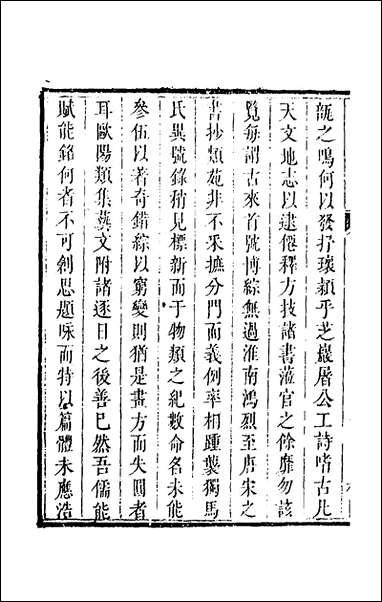 瓻之鳴何以發抒瓌穎乎芝巖屠公工詩嗜古凡
天文地志以逮僊釋方技諸書蒞官之餘靡勿該
覽每謂古來首號博綜無過淮南鴻烈至唐宋之
書抄類苑非不釆摭分門而義例率相踵襲獨馬
氏異號錄稍見標新而于物類之紀數命名未能
參伍以著奇錯綜以窮變則猶是畫方而失圓者
耳歐陽類集藝文附諸逐日之後善已然吾儒能
賦能銘何者不可創思題咏而特以篇體未應浩